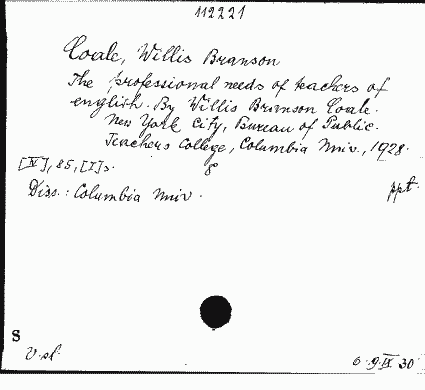 112221
Coale, Willis Branson
The professional needs of teachers of
english. By Willis Branson Coale.
New York City, Bureau of Public.
Teachers College, Columbia Univ., 1928.
[IV], 85, [I] s. 8
Diss.: Columbia Univ. ppt.
S
V. sl. 6.9.IX 30